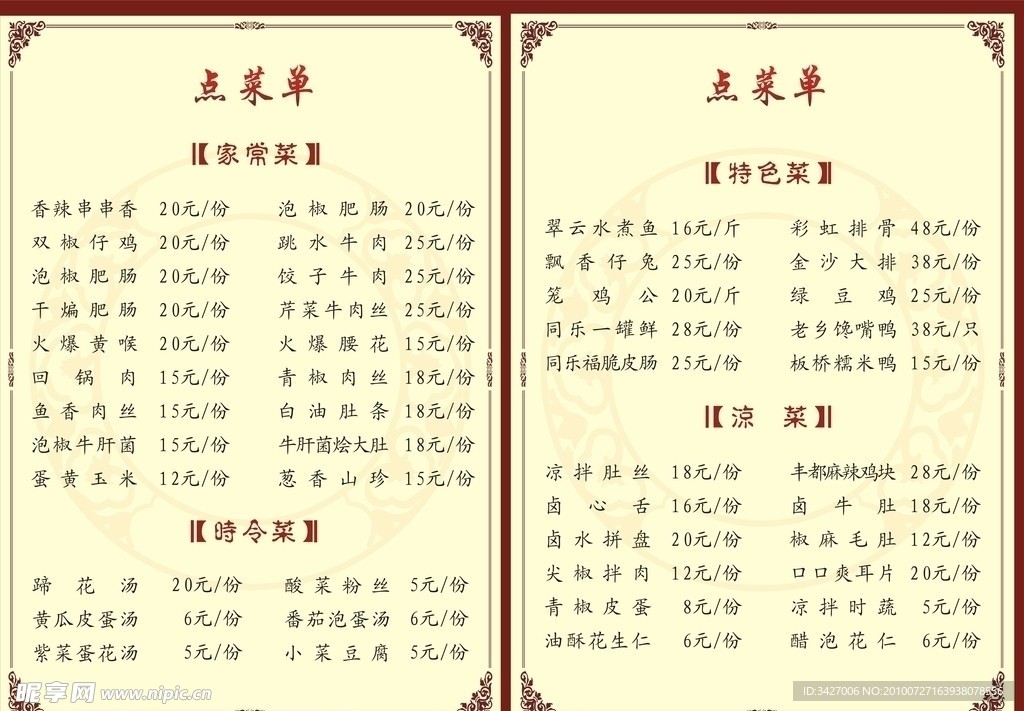 点菜单
【家常菜】
香辣串串香 20元/份 泡椒肥肠 20元/份
双椒仔鸡 20元/份 跳水牛肉 25元/份
泡椒肥肠 20元/份 饺子牛肉 25元/份
干煸肥肠 20元/份 芹菜牛肉丝 25元/份
火爆黄喉 20元/份 火爆腰花 15元/份
回锅肉 15元/份 青椒肉丝 18元/份
鱼香肉丝 15元/份 白油肚条 18元/份
泡椒牛肝菌 15元/份 牛肝菌烩大肚 18元/份
蛋黄玉米 12元/份 葱香山珍 15元/份
【時令菜】
蹄花汤 20元/份 酸菜粉丝 5元/份
黄瓜皮蛋汤 6元/份 番茄泡蛋汤 6元/份
紫菜蛋花汤 5元/份 小菜豆腐 5元/份
昵享网 www.nipic.cn
点菜单
【特色菜】
翠云水煮鱼 16元/斤 彩虹排骨 48元/份
飘香仔兔 25元/份 金沙大排 38元/份
笼鸡公 20元/斤 绿豆鸡 25元/份
同乐一罐鲜 28元/份 老乡馋嘴鸭 38元/只
同乐福脆皮肠 25元/份 板桥糯米鸭 15元/份
【涼菜】
凉拌肚丝 18元/份 丰都麻辣鸡块 28元/份
卤心舌 16元/份 卤牛肚 18元/份
卤水拼盘 20元/份 椒麻毛肚 12元/份
尖椒拌肉 12元/份 口口爽耳片 20元/份
青椒皮蛋 8元/份 凉拌时蔬 5元/份
油酥花生仁 6元/份 醋泡花仁 6元/份
ID:3427006 NO:20100727163938078536